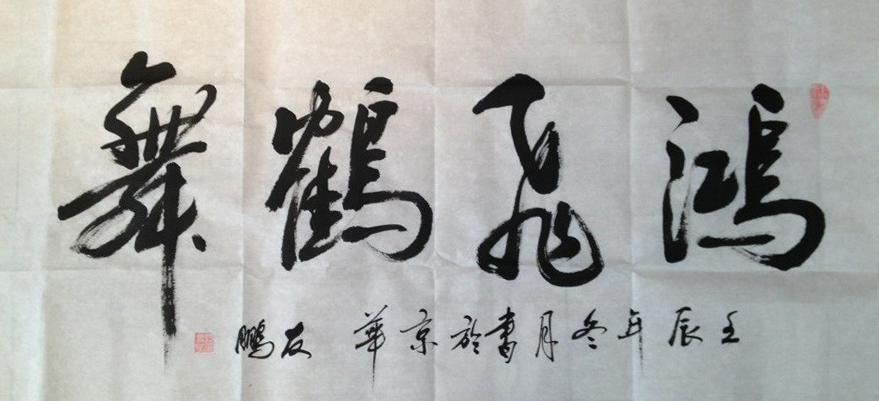 鸿飛鶴舞
壬辰年冬月書於京華 友鵬